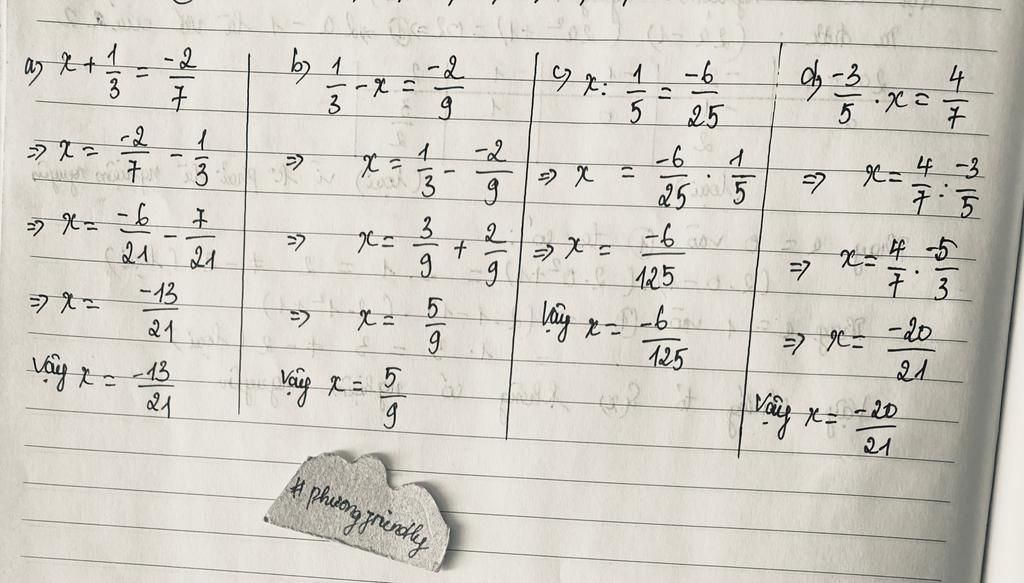 a) x + 1/3 = -2/7
⇒ x = -2/7 - 1/3
⇒ x = -6/21 - 7/21
⇒ x = -13/21
Vậy x = -13/21
b) 1/3 - x = -2/9
⇒ x = 1/3 - -2/9
⇒ x = 3/9 + 2/9
⇒ x = 5/9
Vậy x = 5/9
c) x : 1/5 = -6/25
⇒ x = -6/25 . 1/5
⇒ x = -6/125
Vậy x = -6/125
d) -3/5 . x = 4/7
⇒ x = 4/7 : -3/5
⇒ x = 4/7 . -5/3
⇒ x = -20/21
Vậy x = -20/21
# phuongfriendly